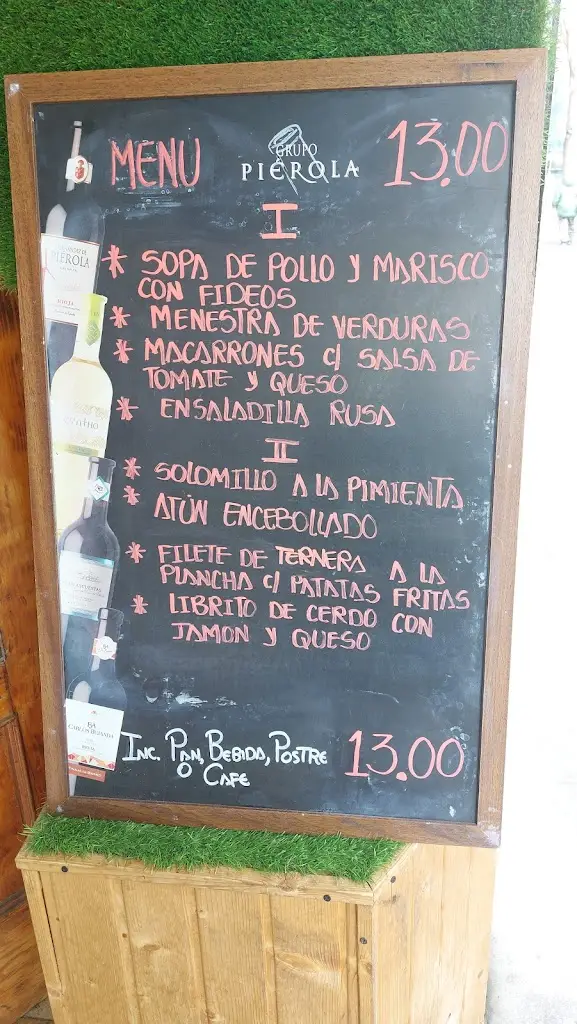 MENU
GRUPO
PIÉROLA
13.00
I
* SOPA DE POLLO Y MARISCO
CON FIDEOS
* MENESTRA DE VERDURAS
* MACARRONES C/ SALSA DE
TOMATE Y QUESO
* ENSALADILLA RUSA
II
* SOLOMILLO A LA PIMIENTA
* ATÚN ENCEBOLLADO
* FILETE DE TERNERA A LA
PLANCHA C/ PATATAS FRITAS
* LIBRITO DE CERDO CON
JAMON Y QUESO
INC. PAN, BEBIDA, POSTRE
O CAFE
13.00
PIÉROLA